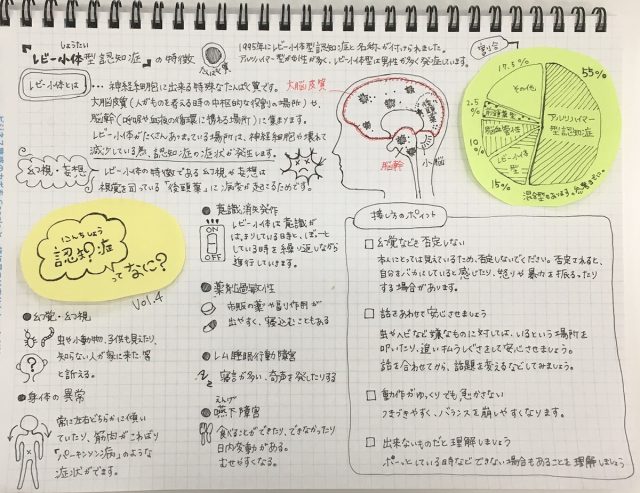 しょうたい
『レビー小体型認知症』の特徴
たんぱく質
1995年にレビー小体型認知症と名称が付けられました。
アルツハイマー型が女性が多く、レビー小体型は男性が多く発症しています。
レビー小体とは
… 神経細胞に出来る特殊なたんぱく質です。
大脳皮質(人がものを考える時の中枢的な役割の場所)や、
脳幹(呼吸や血液の循環に携わる場所)に集まります。
レビー小体がたくさんあつまっている場所は、神経細胞が壊れて
減少している為、認知症の症状が発生します。
幻視・妄想
レビー小体の特徴である幻視や妄想は
視覚を司っている「後頭葉」に病変が起こるためです。
大脳皮質
後頭葉
脳幹
小脳
割合
55%
アルツハイマー
型認知症
17.5%
その他
2.5%
10%
脳血管性
15%
レビー小体型
混合型もあります。
にんちしょう
認知症
って なに?
Vol.4
●幻覚・幻視
虫や小動物、子供も見えたり、
知らない人が家に来た等
と訴える。
●身体の異常
常に左右どちらかに傾い
ていたり、筋肉がこわばり
「パーキンソン病」のような
症状がでます。
●意識消失発作
ON
OFF
レビー小体は意識が
はっきりしている時と、ぼーっと
している時を繰り返しながら
進行していきます。
●薬剤過敏性
市販の薬や副作用が
出やすく、寝込むこともある
●レム睡眠行動障害
寝言が多い、奇声を発したりする
えんげ
●嚥下障害
食べることができたり、できなかったり
日内変動がある。
むせやすくなる。
接し方のポイント
□ 幻覚などを否定しない
本人にとっては見えているため、否定しないでください。否定されると、
自分をバカにしていると感じたり、怒りや暴力を振るったり
する場合があります。
□ 話をあわせて安心させましょう
虫やヘビなど嫌なものに対しては、いるという場所を
叩いたり、追い払うしぐさをして安心させましょう。
話を合わせてから、話題を変えるなどしてみましょう。
□ 動作がゆっくりでも急かさない
つまづきやすく、バランスを崩しやすくなります。
□ 出来ないものだと理解しましょう
ボーッとしている時などできない場合もあることを理解しましょう